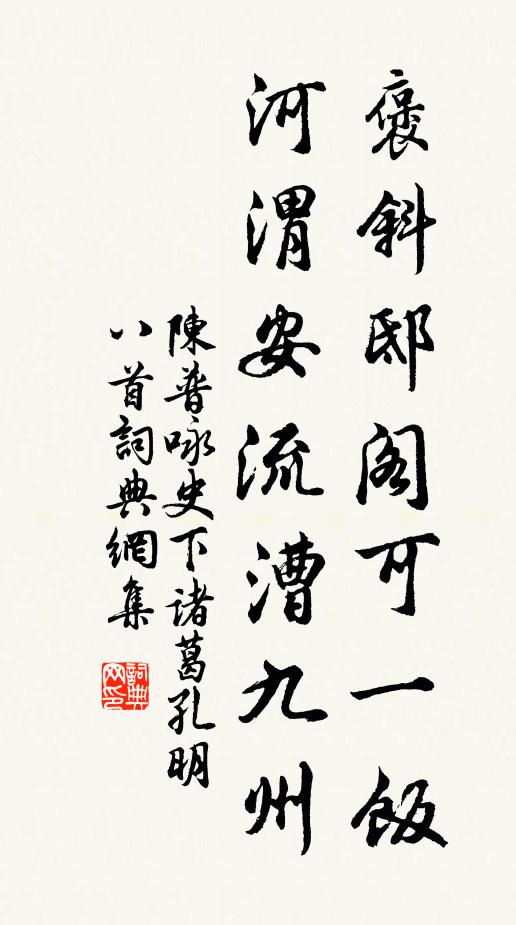 褒斜邸阁可一飯
河渭安流漕九州
陳普咏史下諸葛孔明
八首詞典網集
詞典網印